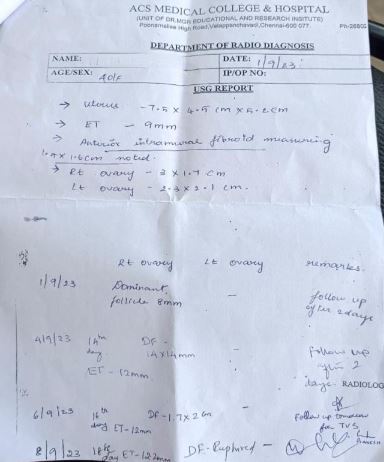 ACS MEDICAL COLLEGE & HOSPITAL
(UNIT OF DR.MGR EDUCATIONAL AND RESEARCH INSITUTE)
Poonamallee High Road, Velappanchavadi, Chennai-600 077.
DEPARTMENT OF RADIO DIAGNOSIS
NAME: DATE: 1/9/23
AGE/SEX: 40/F IP/OP NO:
USG REPORT
→ Uterus - 7.5 x 4.5 cm x 5.2 cm
→ ET - 9mm
→ Anterior intramural fibroid measuring
x 1.6cm noted.
→ Rt ovary - 3 x 1.7 cm
Lt ovary - 2.3 x 2.1 cm.
Rt ovary Lt ovary remarks.
1/9/23 Dominant follicle 8mm - follow up after 2 days
4/9/23 14th day DF - 14 x 14mm - Follow up after 2 days
ET - 12mm
RADIOLOG
6/9/23 16th day DF - 1.7 x 2 cm - Follow up tomorrow for TVS
ET - 12mm
8/9/23 18th day DF - Ruptured -